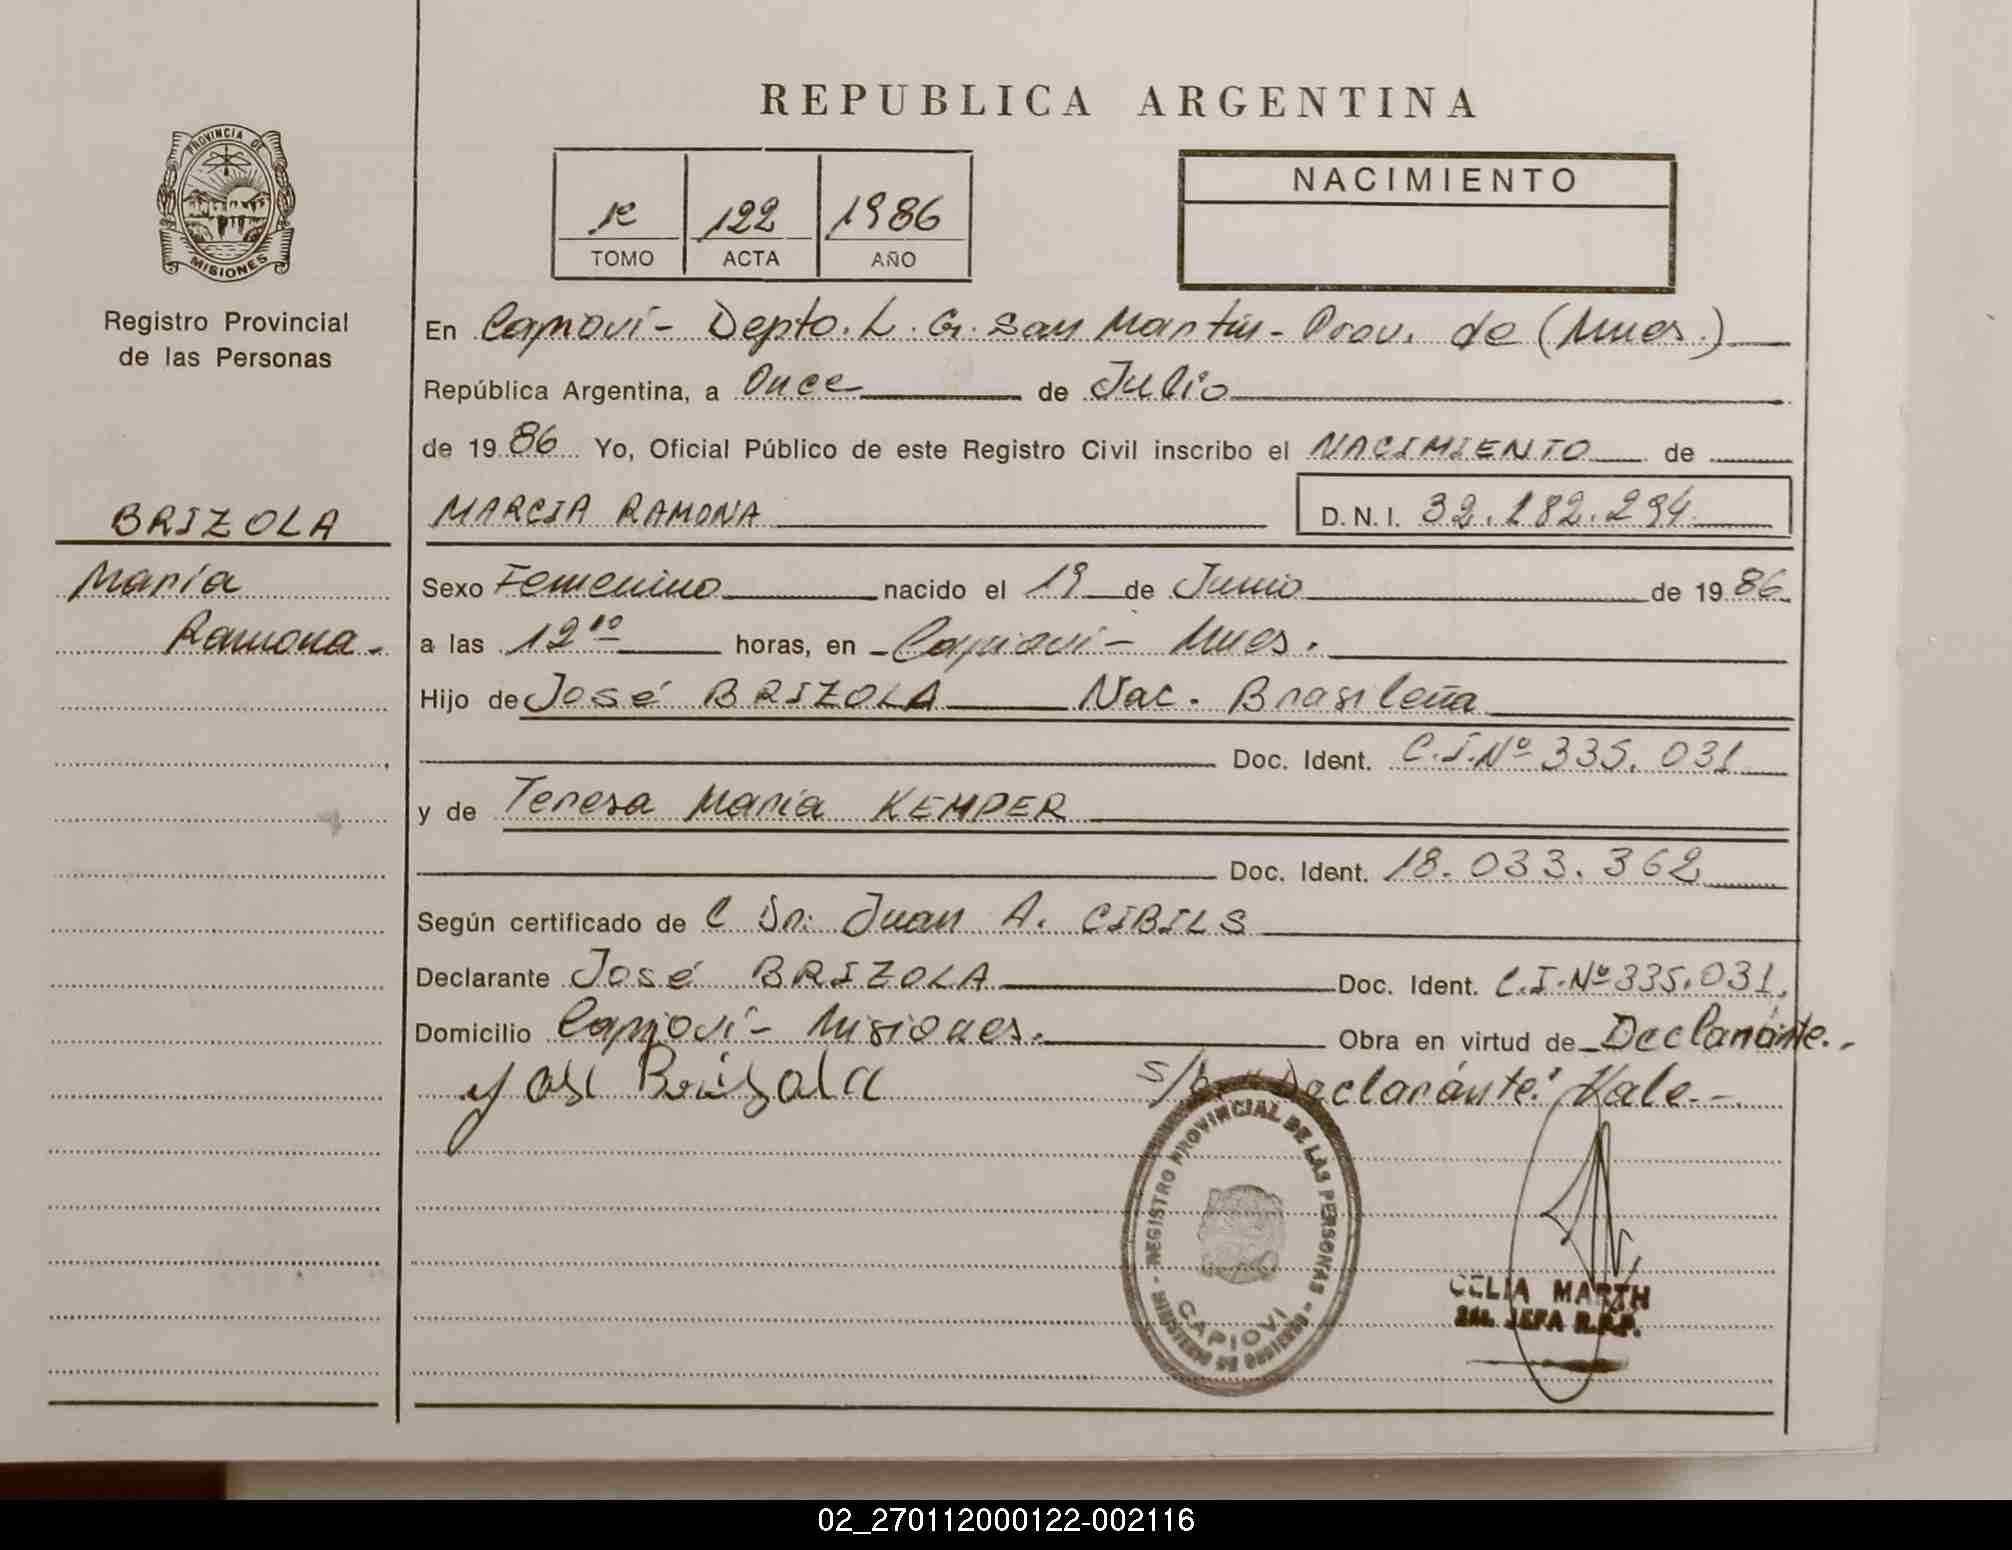 REPUBLICA ARGENTINA
PROVINCIA DE
MISIONES
Registro Provincial
de las Personas
1º 122 1986
TOMO ACTA AÑO
NACIMIENTO
En Capioví- Depto. L. G. San Martín- Prov. de (Mnes.)
República Argentina, a Once de Julio
de 1986 Yo, Oficial Público de este Registro Civil inscribo el NACIMIENTO de
MARCIA RAMONA D.N.I. 32.182.294
BRIZOLA
María
Ramona.
Sexo Femenino nacido el 19 de Junio de 1986
a las 12 10 horas, en Capioví- Mnes.
Hijo de José BRIZOLA Nac. Brasileña
Doc. Ident. C.I.Nº 335.031
y de Teresa María KEMPER
Doc. Ident. 18.033.362
Según certificado de C Dr: Juan A. CIBILS
Declarante José BRIZOLA Doc. Ident. C.I.Nº 335.031.
Domicilio Capioví- Misiones. Obra en virtud de Declaránte.-
José Brisola "Declaránte" Vale.--
REGISTRO PROVINCIAL DE LAS PERSONAS - MINISTERIO DE GOBIERNO -
CAPIOVI
CELIA MARTH
JEFA R.P.P.
02_270112000122-002116